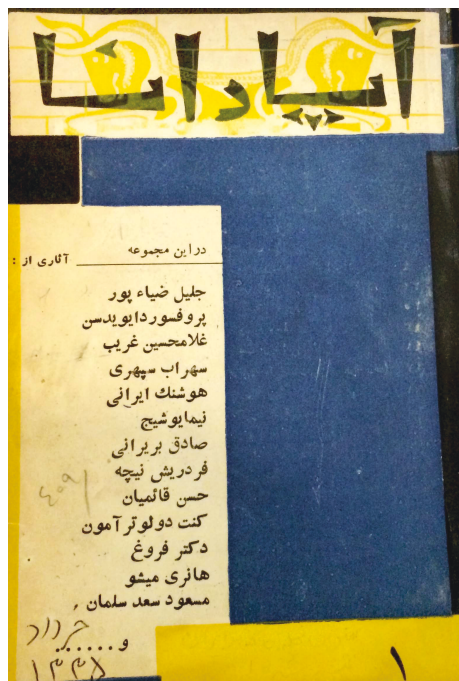 آپادانا
در این مجموعه
آثاری از :
جلیل ضیاء پور
پروفسور دایویدسن
غلامحسین غریب
سهراب سپهری
هوشنك ایرانی
نیمایوشیج
صادق بریرانی
فردریش نیچه
حسن قائمیان
کنت دولوتر آمون
دکتر فروغ
هانری میشو
مسعود سعد سلمان ,
و ......
خرداد
۱۳۳۵
۱